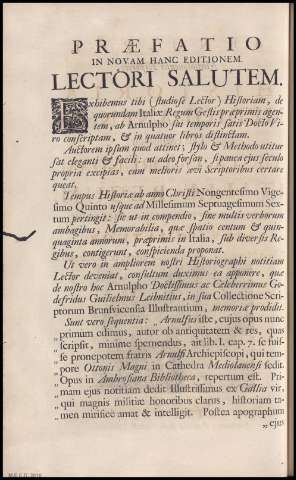 PRÆFATIO
IN NOVAM HANC EDITIONEM.
LECTORI SALUTEM.
Exhibemus tibi (studiose Lector) Historiam, de
quorundam Italiæ Regum Gestis præprimis agen-
tem, ab Arnulpho sui temporis satis Docto Vi-
ro conscriptam, & in quatuor libros distinctam.
Auctorem ipsum quod attinet; stylo & Methodo utitur
sat eleganti & facili: ut adeo forsan, si pauca ejus seculo
propria excipias, cum melioris ævi Scriptoribus certare
queat.
Tempus Historiæ ab anno Christi Nongentesimo Vige-
simo Quinto usque ad Millesimum Septuagesimum Sex-
tum pertingit: sic ut in compendio, sine multis verborum
ambagibus, Memorabilia, quæ spatio centum & quin-
quaginta annorum, præprimis in Italia, sub diversis Re-
gibus, contigerunt, conspicienda proponat.
Ut vero in ampliorem nostri Historiographi notitiam
Lector deveniat, consultum duximus ea apponere, quæ
de nostro hoc Arnulpho Doctissimus ac Celeberrimus Go-
defridus Guilielmus Leibnitius, in sua Collectione Scri-
ptorum Brunsvicensia Illustrantium, memoriæ prodidit.
Sunt vero sequentia: „Arnulfus iste, cujus opus nunc
„ primum edimus, autor ob antiquitatem & res, quas
„ scripsit, minime spernendus, ait lib. I. cap. 7. se fuis-
„ se pronepotem fratris Arnulfi Archiepiscopi, qui tem-
„ pore Ottonis Magni in Cathedra Mediolanensi sedit.
„ Opus in Ambrosiana Bibliotheca, repertum est. Pri-
„ mam ejus notitiam dedit Illustrissimus ex Gallia vir,
„ qui magnis militiæ honoribus clarus, historiam ta-
„ men mirifice amat & intelligit. Postea apographum
„ ejus